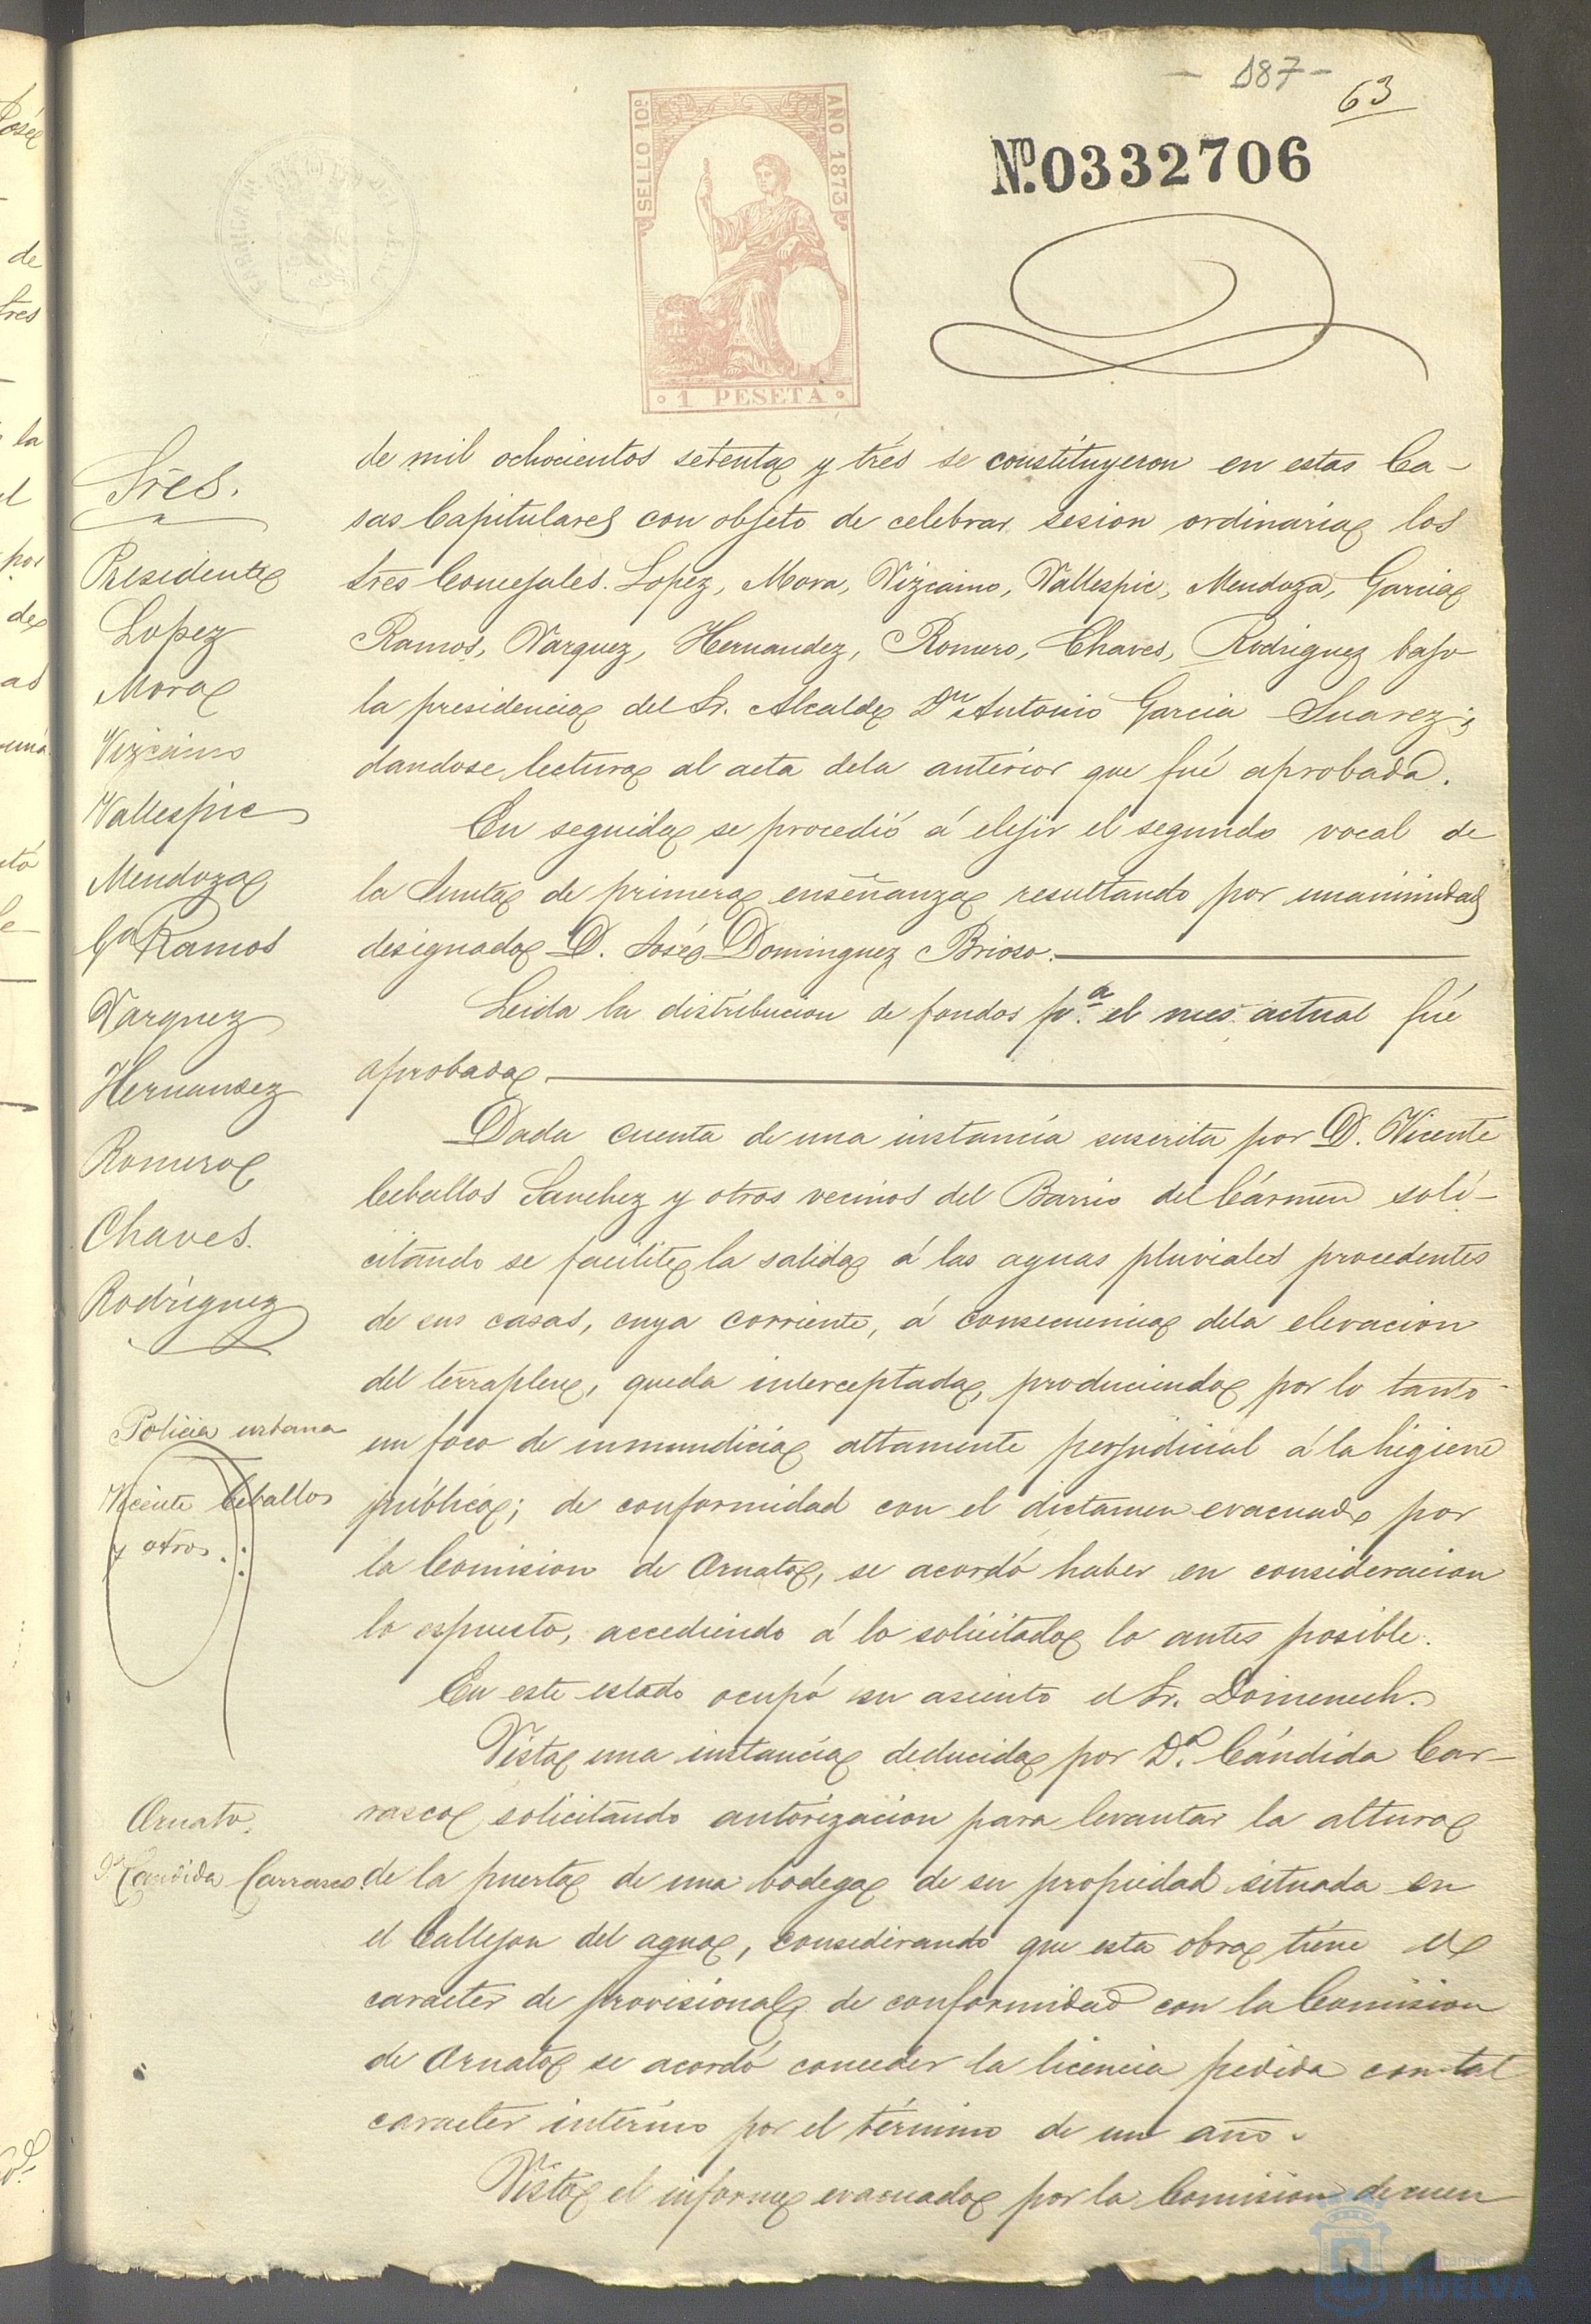 - 187 -
63
SELLO 10º
AÑO 1873
1 PESETA
Nº.0332706
Sres.
Presidente
Lopez
Mora
Vizcaino
Vallespic
Mendoza
Gª Ramos
Varquez
Hernandez
Romero
Chaves.
Rodriguez
de mil ochocientos setenta y tres se constituyeron en estas Ca-
sas Capitulares con objeto de celebrar sesion ordinaria los
Sres Concejales. Lopez, Mora, Vizcaino, Vallespic, Mendoza, Garcia
Ramos, Varquez, Hernandez, Romero, Chaves, Rodriguez bajo
la presidencia del Sr. Alcalde Dn Antonio Garcia Suarez;
dandose lectura al acta dela anterior que fué aprobada.
En seguida se procedió á elejir el segundo vocal de
la Junta de primera enseñanza resultando por unanimidad
designado D. José Dominguez Brioso.
Leida la distribucion de fondos pª el mes actual fué
aprobada.
Dada cuenta de una instancia suscrita por D. Vicente
Ceballos Sanchez y otros vecinos del Barrio del Cármen soli-
citando se facilite la salida á las aguas pluviales procedentes
de sus casas, cuya corriente, á consecuencia dela elevacion
del terraplen, queda interceptada, produciendo por lo tanto
Policia urbana
Vicente Ceballos
y otros.
un foco de inmundicia altamente perjudicial á la higiene
pública; de conformidad con el dictamen evacuado por
la Comision de Ornato, se acordó haber en consideracion
lo espuesto, accediendo á lo solicitado lo antes posible.
En este estado ocupó su asiento el Sr. Domenech.
Vista una instancia deducida por Dª Cándida Car-
Ornato.
Dª Candida Carrasco.
rasco solicitando autorizacion para levantar la altura
de la puerta de una bodega de su propiedad situada en
el Callejon del agua, considerando que esta obra tiene el
caracter de provisional, de conformidad con la Comision
de Ornato se acordó conceder la licencia pedida con tal
caracter interino por el término de un año.
Visto el informe evacuado por la Comision de cuen
HUELVA